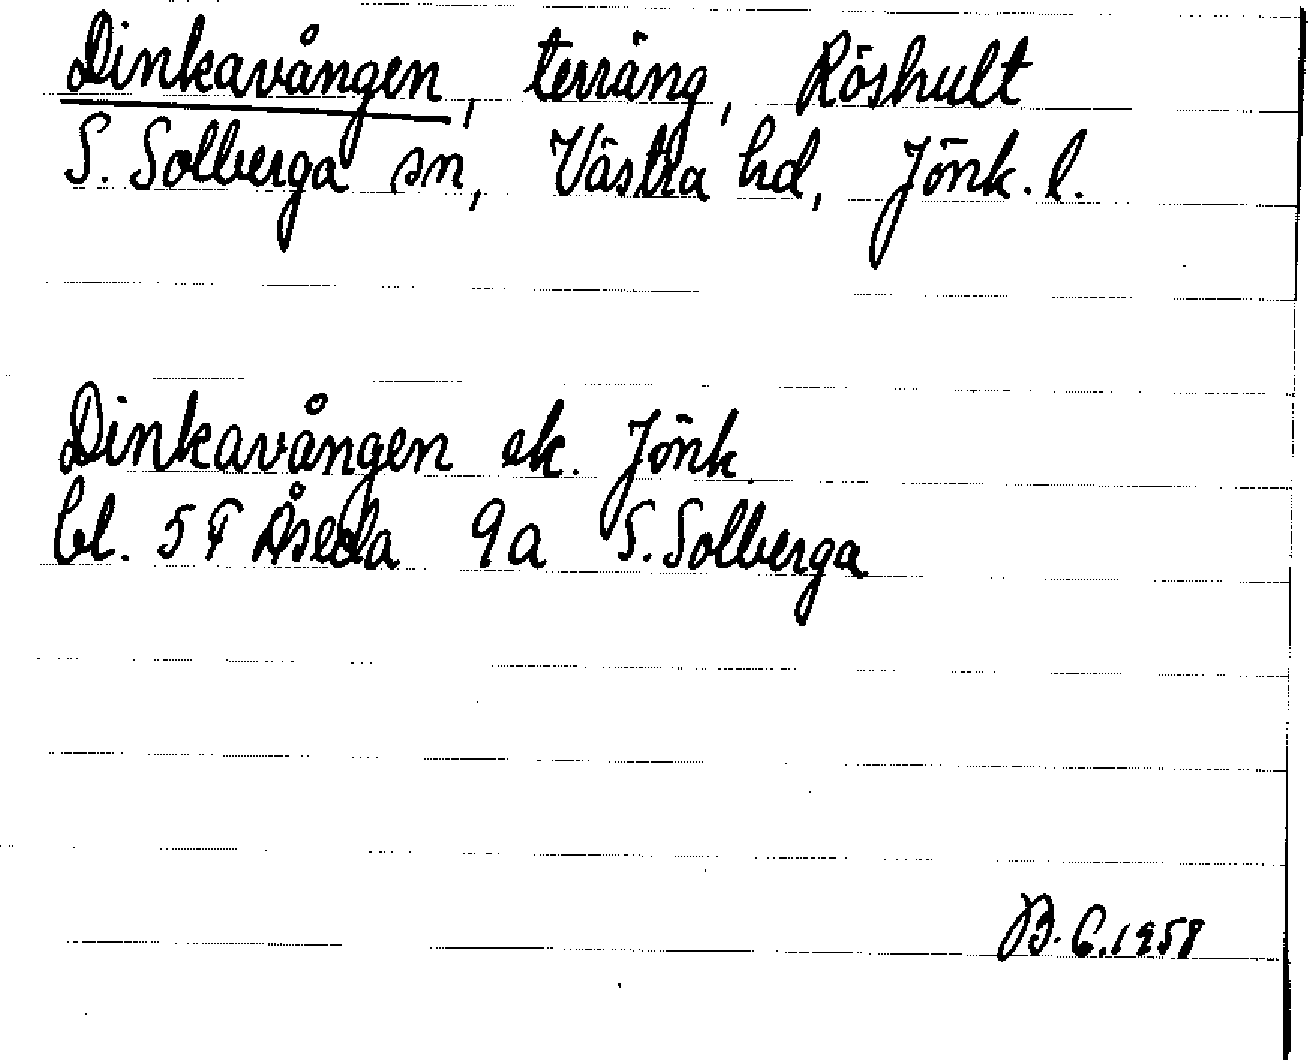 Dinkavången, terräng, Röshult
S. Solberga sn, Västra hd, Jönk. l.
Dinkavången ek. Jönk.
bl. 5F Åseda 9a S. Solberga
B.E.1958